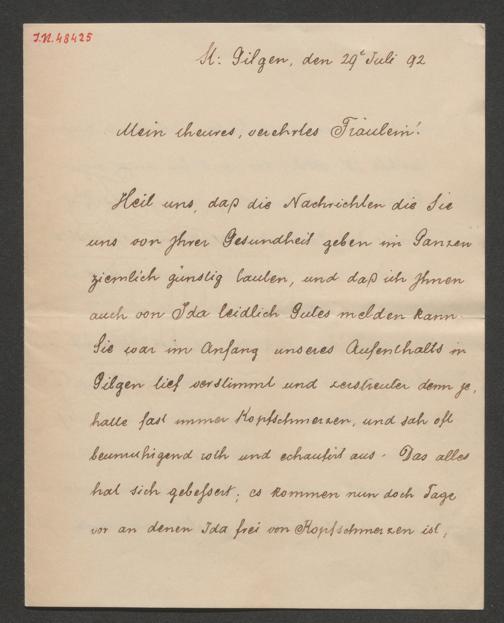 J.N. 48425
St: Gilgen, den 29t Juli 92
Mein theures, verehrtes Fräulein!
Heil uns, daß die Nachrichten die Sie
uns von Ihrer Gesundheit geben im Ganzen
ziemlich günstig lauten, und daß ich Ihnen
auch von Ida leidlich Gutes melden kann.
Sie war im Anfang unseres Aufenthalts in
Gilgen tief verstimmt und zerstreuter denn je,
hatte fast immer Kopfschmerzen, und sah oft
beunruhigend roth und echaufirt aus. Das alles
hat sich gebessert; es kommen nun doch Tage
vor an denen Ida frei von Kopfschmerzen ist,